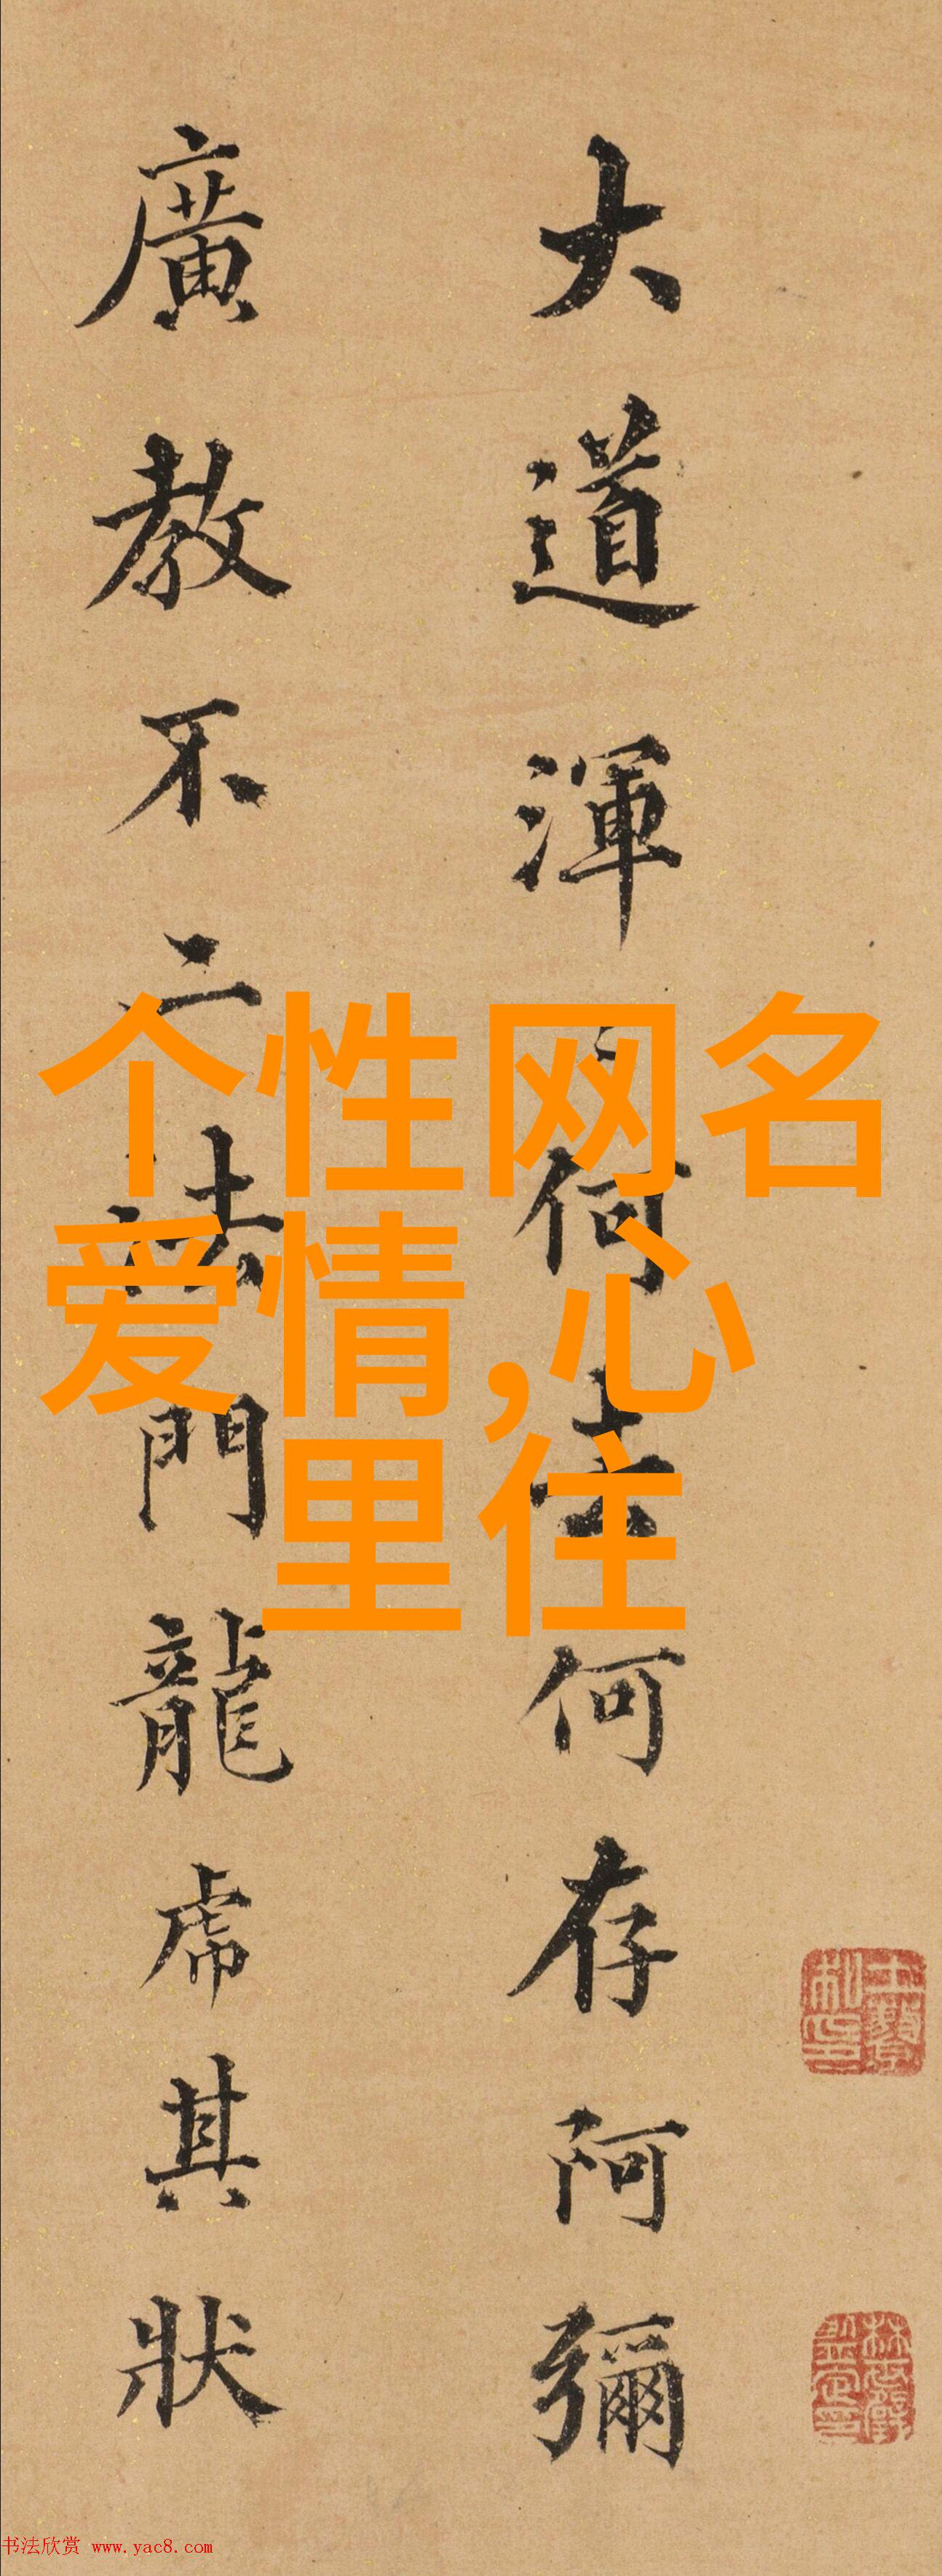 大道渾
何去何存阿彌
廣教不二法門龍虎其狀
个性网名
爱情,心
里住
书法欣赏 www.yac8.com